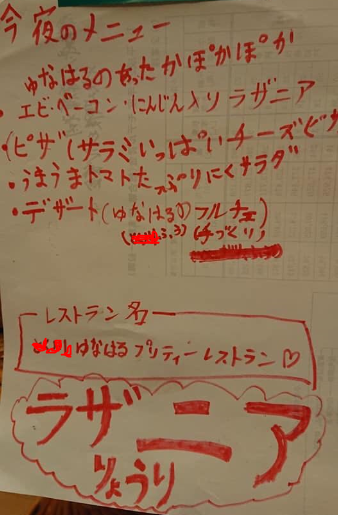 今夜のメニュー
ゆなはるのあったかぽかぽか
・エビ・ベーコン・にんじん入りラザニア
・(ピザ(サラミいっぱいチーズピザ
・うまうまトマトたっぷりにくサラダ
・デザート(ゆなはるのフルーチェ)
(手づくり)
レストラン名
ゆなはるプリティーレストラン♡
ラザニア
りょうり